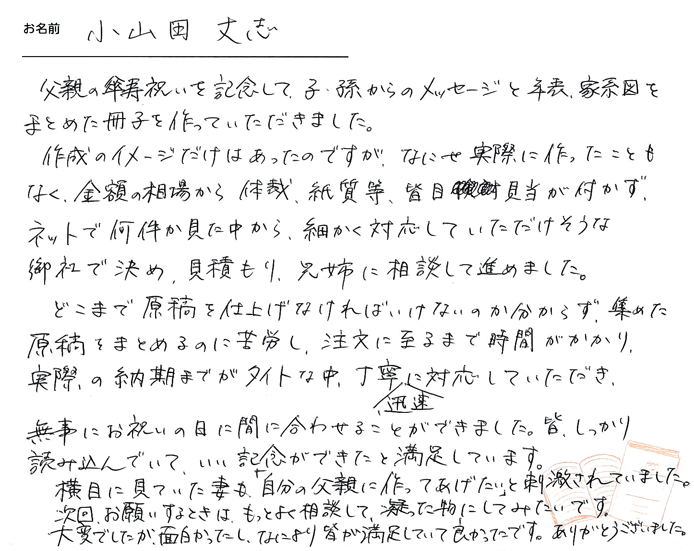 お名前 小山田 丈志
父親の傘寿祝いを記念して、子・孫からのメッセージと年表、家系図を
まとめた冊子を作っていただきました。
作成のイメージだけはあったのですが、なにせ実際に作ったことも
なく、金額の相場から体裁、紙質等、皆目見当が付かず、
ネットで何件か見た中から、細かく対応していただけそうな
御社で決め、見積もり、兄姉に相談して進めました。
どこまで原稿を仕上げなければいけないのか分からず、集めた
原稿をまとめるのに苦労し、注文に至るまで時間がかかり、
実際の納期までがタイトな中、丁寧に対応していただき、
迅速
無事にお祝いの日に間に合わせることができました。皆、しっかり
読み込んでいて、いい記念ができたと満足しています。
横目に見ていた妻も「自分の父親に作ってあげたい」と刺激されていました。
次回、お願いするときは、もっとよく相談して、凝った物にしてみたいです。
大変でしたが、面白かったし、なにより皆が満足していて良かったです。ありがとうございました。